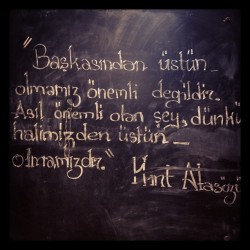 "Başkasından üstün
olmamız önemli değildir.
Asıl önemli olan şey, dünkü
halimizden üstün
olmamızdır." Hint Atasözü